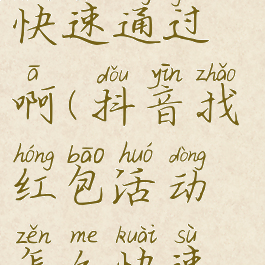 快速通过
ā dǒu yīn zhǎo
啊(抖音找
hóng bāo huó dòng
红包活动
zěn me kuài sù
怎么快速